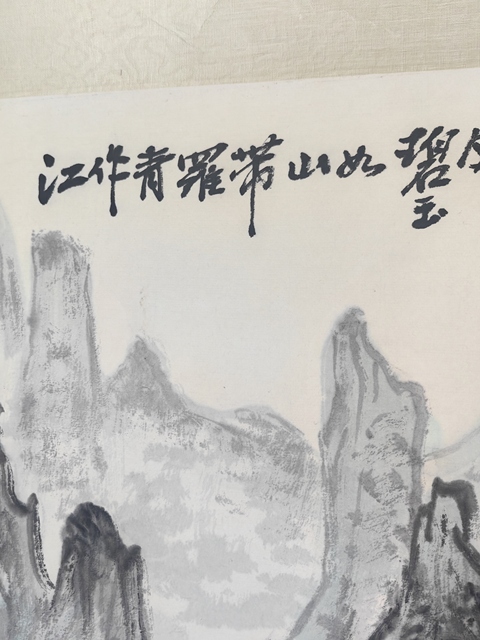 江作青羅帶山如碧玉